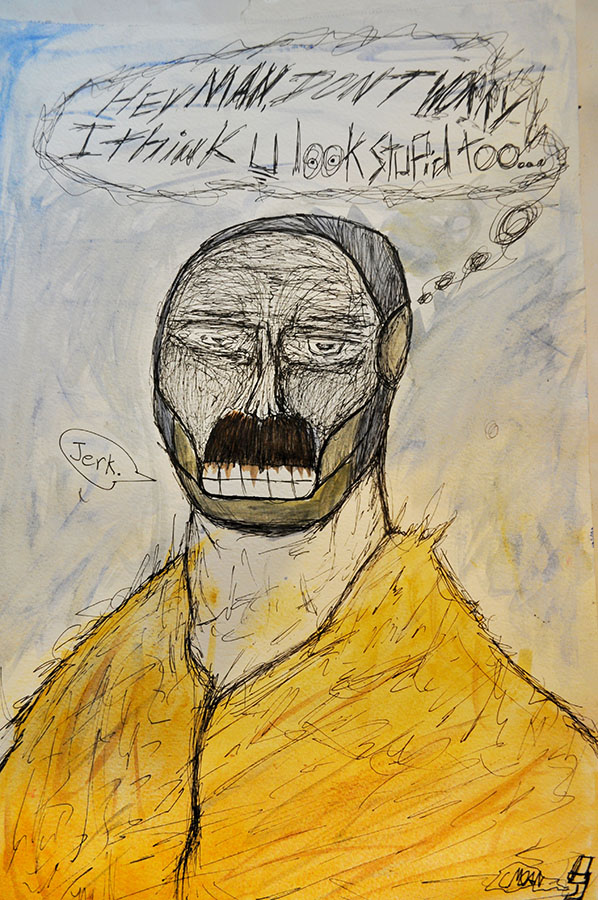 HEY MAN, DON'T WORRY
I think U look stupid too...
Jerk.
MOAN